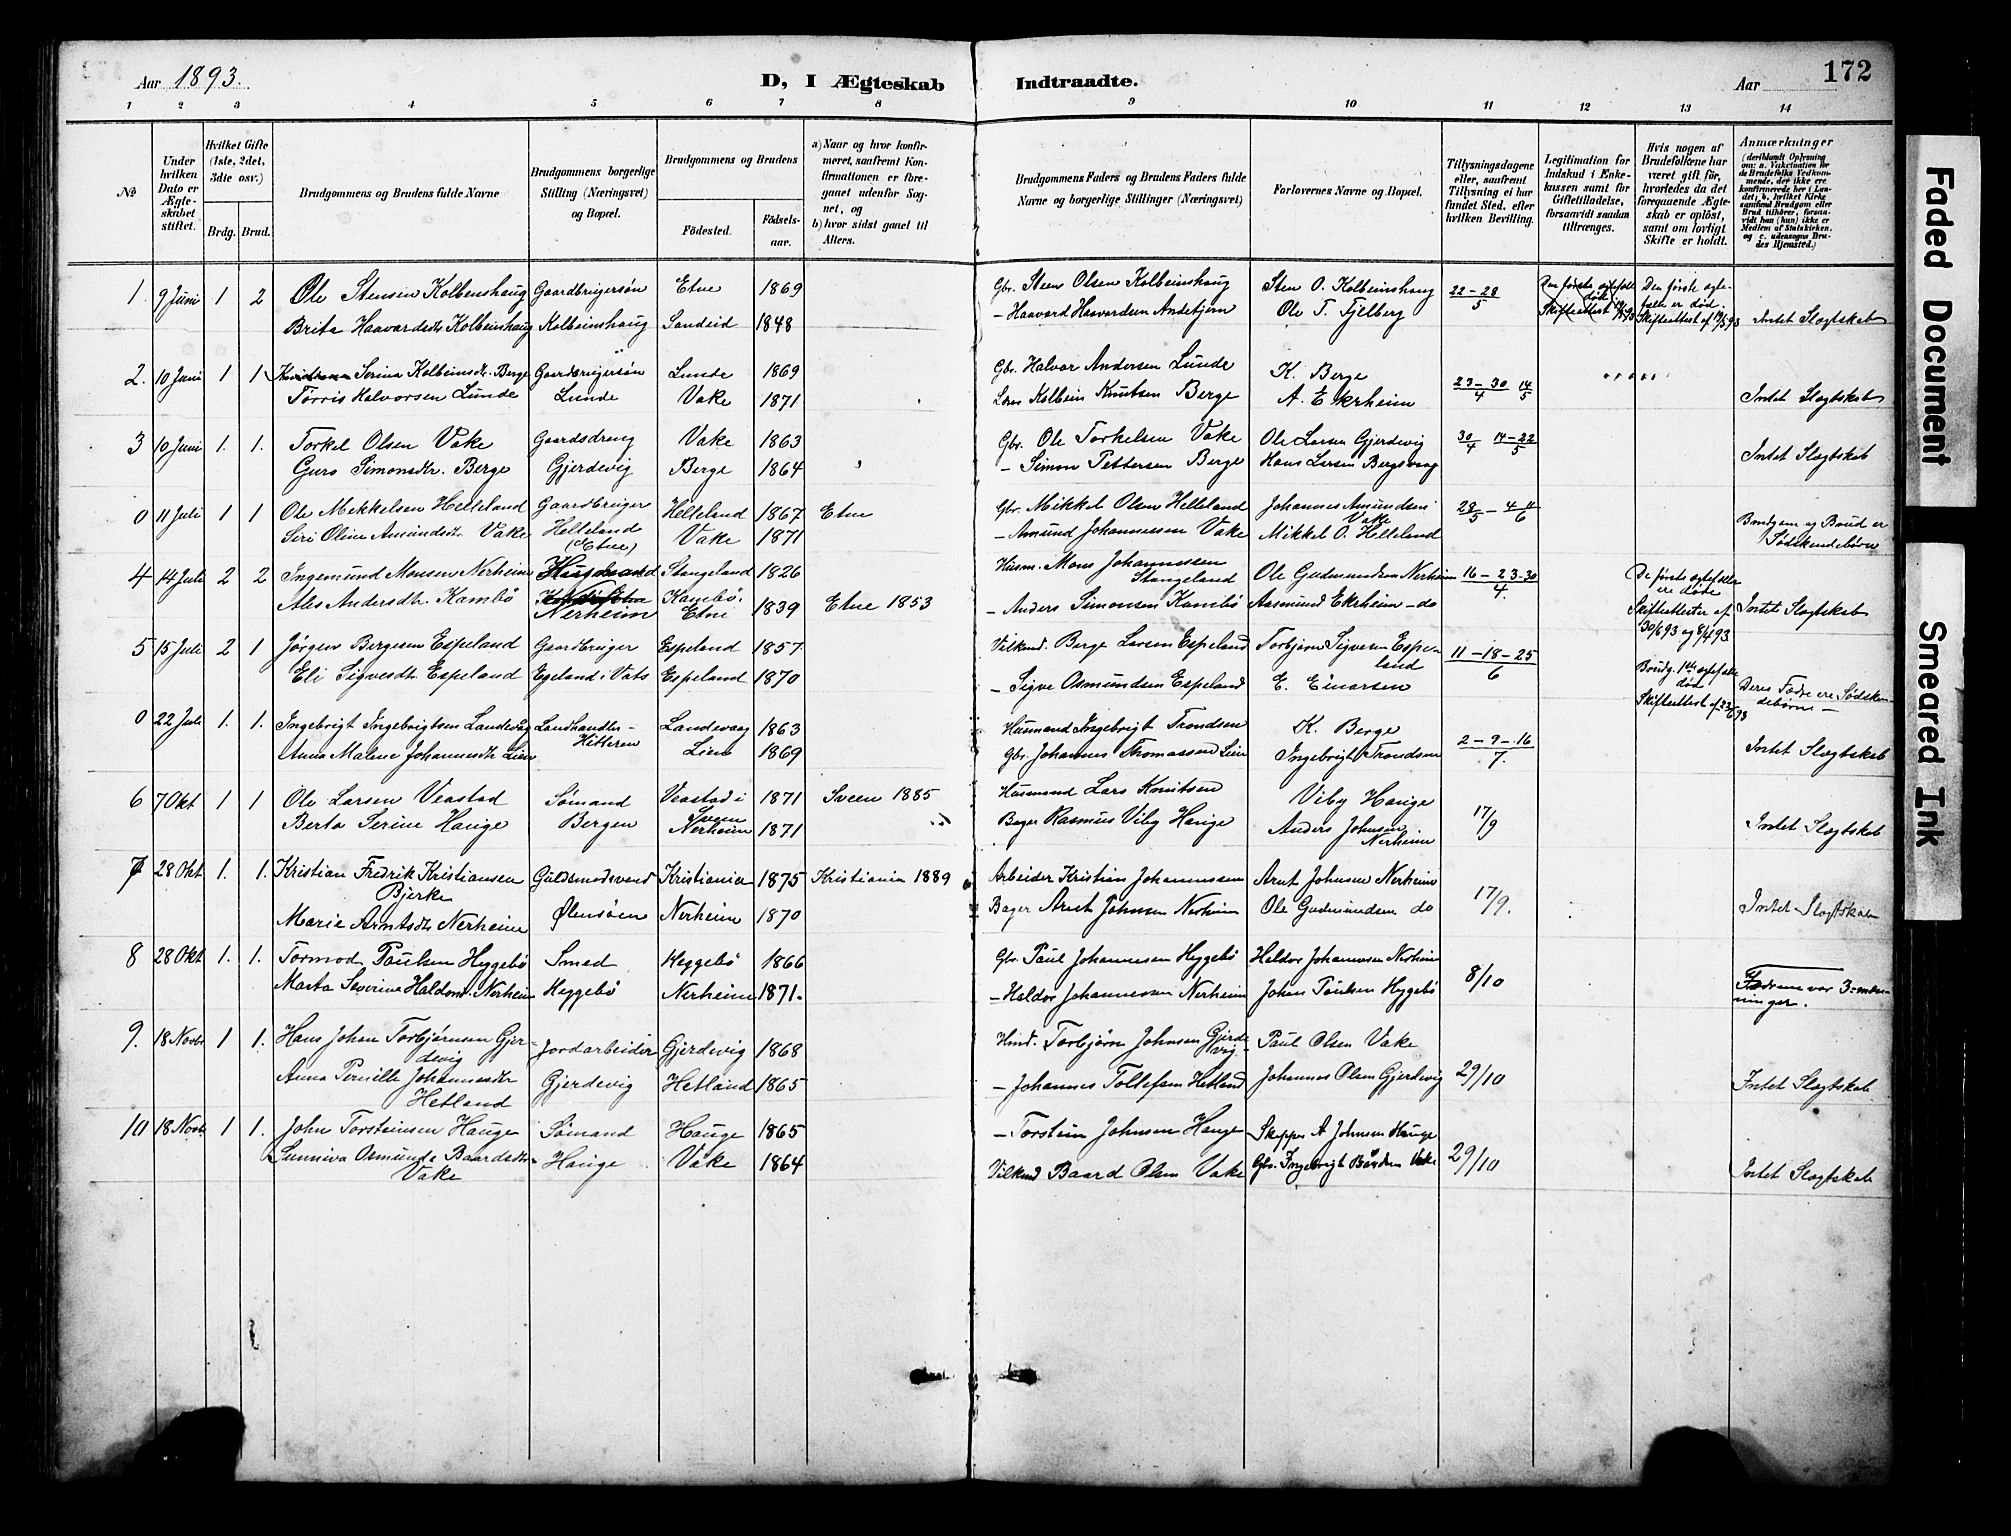 Aar 1893.
D, I Ægteskab
Indtraadte.
Aar
172
1 2 3 4 5 6 7 8 9 10 11 12 13 14
No
Under hvilken Dato er Ægteskabet stiftet.
Hvilket Gifte (1ste, 2det, 3die osv.)
Brdg. Brud.
Brudgommens og Brudens fulde Navne
Brudgommens borgerlige Stilling (Næringsvei) og Bopæl.
Brudgommens og Brudens
Fødested.
Fødselsaar.
a) Naar og hvor konfirmeret, saafremt Konfirmationen er foregaaet udenfor Sognet, og
b) hvor sidst gaaet til Alters.
Brudgommens Faders og Brudens Faders fulde Navne og borgerlige Stillinger (Næringsvei)
Forlovernes Navne og Bopæl.
Tillysningsdagene eller, saafremt Tillysning ei har fundet Sted, efter hvilken Bevilling.
Legitimation for Indskud i Enkekassen samt for Giftetilladelse, forsaavidt saadan tiltrænges.
Hvis nogen af Brudefolkene har været gift før, hvorledes da det foregaaende Ægteskab er opløst, samt om lovligt Skifte er holdt.
Anmærkninger
(deriblandt Oplysning om: a. Vakcination for de Brudefolks Vedkommende, der ikke ere konfirmerede her i Landet; b. hvilket Kirkesamfund Brudgom eller Brud tilhører, forsaavidt han (hun) ikke er Medlem af Statskirken, og c. udensogns Brudes Hjemsted.)
1. 9 Juni 1 2 Ole Stensen Kolbenshaug Gaardbrugersøn Etne 1869 Gbr. Steen Olsen Kolbeinshaug Sten O. Kolbeinshaug 22-28/5 Den første ægtefælle død Skifteattest Den første ægtefælle er død. Skifteattest af 19/5 93
Brita Haavardsdtr Kolbeinshaug Kolbeinshaug Sandeid 1848 - Haavard Haavardsen Andebjørn Ole T. Fjelberg Intet Slægtskab
2. 10 Juni 1 1 Serina Kolbeinsdtr. Berge Gaardbrugersøn Lunde 1869 Gbr. Halvor Andersen Lunde K. Berge 23-30/4 14/5
Tørris Halvorsen Lunde Lunde Vake 1871 Kolbein Knutsen Berge A. Ekrheim Intet Slægtskab
3 10 Juni 1. 1. Torkel Olsen Vake Gaardsdreng Vake 1863 Gbr. Ole Torkelsen Vake Ole Larsen Gjerdevig 30/4 14-22/5
Guro Simonsdtr. Berge Gjerdevig Berge 1864 - Simon Pettersen Berge Hans Larsen Bergsvaag Intet Slægtskab
0 11 Juli 1 1 Ole Mikkelsen Helleland Gaardbruger Helleland 1867 Etne Gbr. Mikkel Olsen Helleland Johannes Amundsen Vake 28/5 - 4 - 11/6
Siri Oline Amundsdtr Vake Helleland (Etne) Vake 1871 - Amund Johannessen Vake Mikkel O. Helleland Brudgom og Brud er Sødskendebørn
4 14 Juli 2 2 Ingemund Monsen Nerheim Husmand Stangeland 1826 Husm. Mons Johannessen Stangeland Ole Gudmundsen Nerheim 16-23-30/4. De første ægtefæller ere døde
Ales Andersdtr. Kambø Nerheim Kambø. Etne 1839 Etne 1853 - Anders Simonsen Kambø Aasmund Ekrheim - do Skifteattester af 30/6 93 og 8/4 93 Intet Slægtskab
5 15 Juli 2 1 Jørgen Bergesen Espeland Gaardbruger Espeland 1857 Vilkmd. Berge Larsen Espeland Torbjørn Sigvesen Espeland 11-18-25/6
Eli Sigvesdtr Espeland Egeland i Vats Espeland 1870 - Sigve Osmundsen Espeland E. Einarsen Brudg. 1ste ægtefælle død Skifteattest af 23/6 93 Deres Fædre ere Sødskendebørn -
0 22 Juli 1. 1. Ingebrigt Ingebrigtsen Landevåg Landhandler - Hitteren Landevaag 1863 Husmand Ingebrigt Trondsen K. Berge 2-9-16/7.
Anna Malene Johannesdtr Lien Lien 1869 Gbr. Johannes Thomassen Lien Ingebrigt Trondsen Intet Slægtskab
6 7 Okt 1 1 Ole Larsen Veastad Sømand Veastad i Sveen 1871 Sveen 1885 Husmand Lars Knutsen Viby Hauge 17/9
Berta Serine Hauge Bergen Nerheim 1871 Bager Rasmus Viby Hauge Anders Johnsen Nerheim Intet Slægtskab
7 28 Okt 1. 1. Kristian Fredrik Kristiansen Bjerke Guldsmedsvend Kristiania 1875 Kristiania 1889 Arbeider Kristian Johannessen Arnt Johnsen Nerheim 17/9.
Marie Arntsdtr Nerheim Ølensøen Nerheim 1870 Bager Arnt Johnsen Nerheim Ole Gudmundsen do Intet Slægtskab
8 28 Okt. 1. 1. Tormod Paulsen Heggebø Smed Heggebø 1866 Gbr. Paul Johannesen Heggebø Haldor Johannesen Nerheim 8/10
Marta Severine Haldorsd. Nerheim Heggebø Nerheim 1871. - Haldor Johannesen Nerheim Johan Paulsen Heggebø Fædrene var 3-menninger.
9. 18 Novbr 1 1. Hans Johan Torbjørnsen Gjerdevig Jordarbeider Gjerdevig 1868 Hmd. Torbjørn Johnsen Gjerdevig - Paul Olsen Vake 29/10
Anna Pernille Johannesdtr Hetland Gjerdevig Hetland 1865 - Johannes Tollefsen Hetland Johannes Olsen Gjerdevig Intet Slægtskab
10 18 Novb. 1 1. John Torsteinsen Hauge Sømand Hauge 1865 - Torstein Johnsen Hauge Skipper A Johnsen Hauge 29/10
Sunniva Osmunde Baardsdtr Vake Hauge Vake 1864 Vilkmd Baard Olsen Vake Gbr. Ingebrigt Bårdsen Vake Intet Slægtskab
Faded Document
Smeared Ink